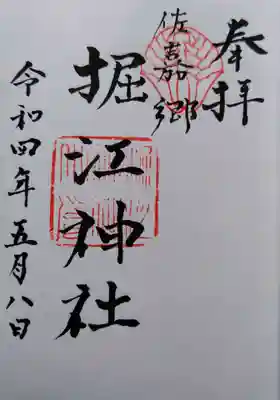 奉拝
佐嘉郷
堀江神社
令和四年五月八日